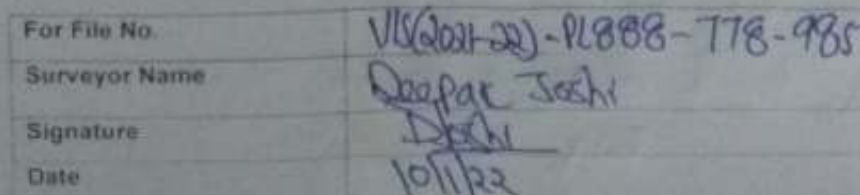 For File No. VIS(2021-22)-PL888-778-985
Surveyor Name Deepak Joshi
Signature DJoshi
Date 10/1/22